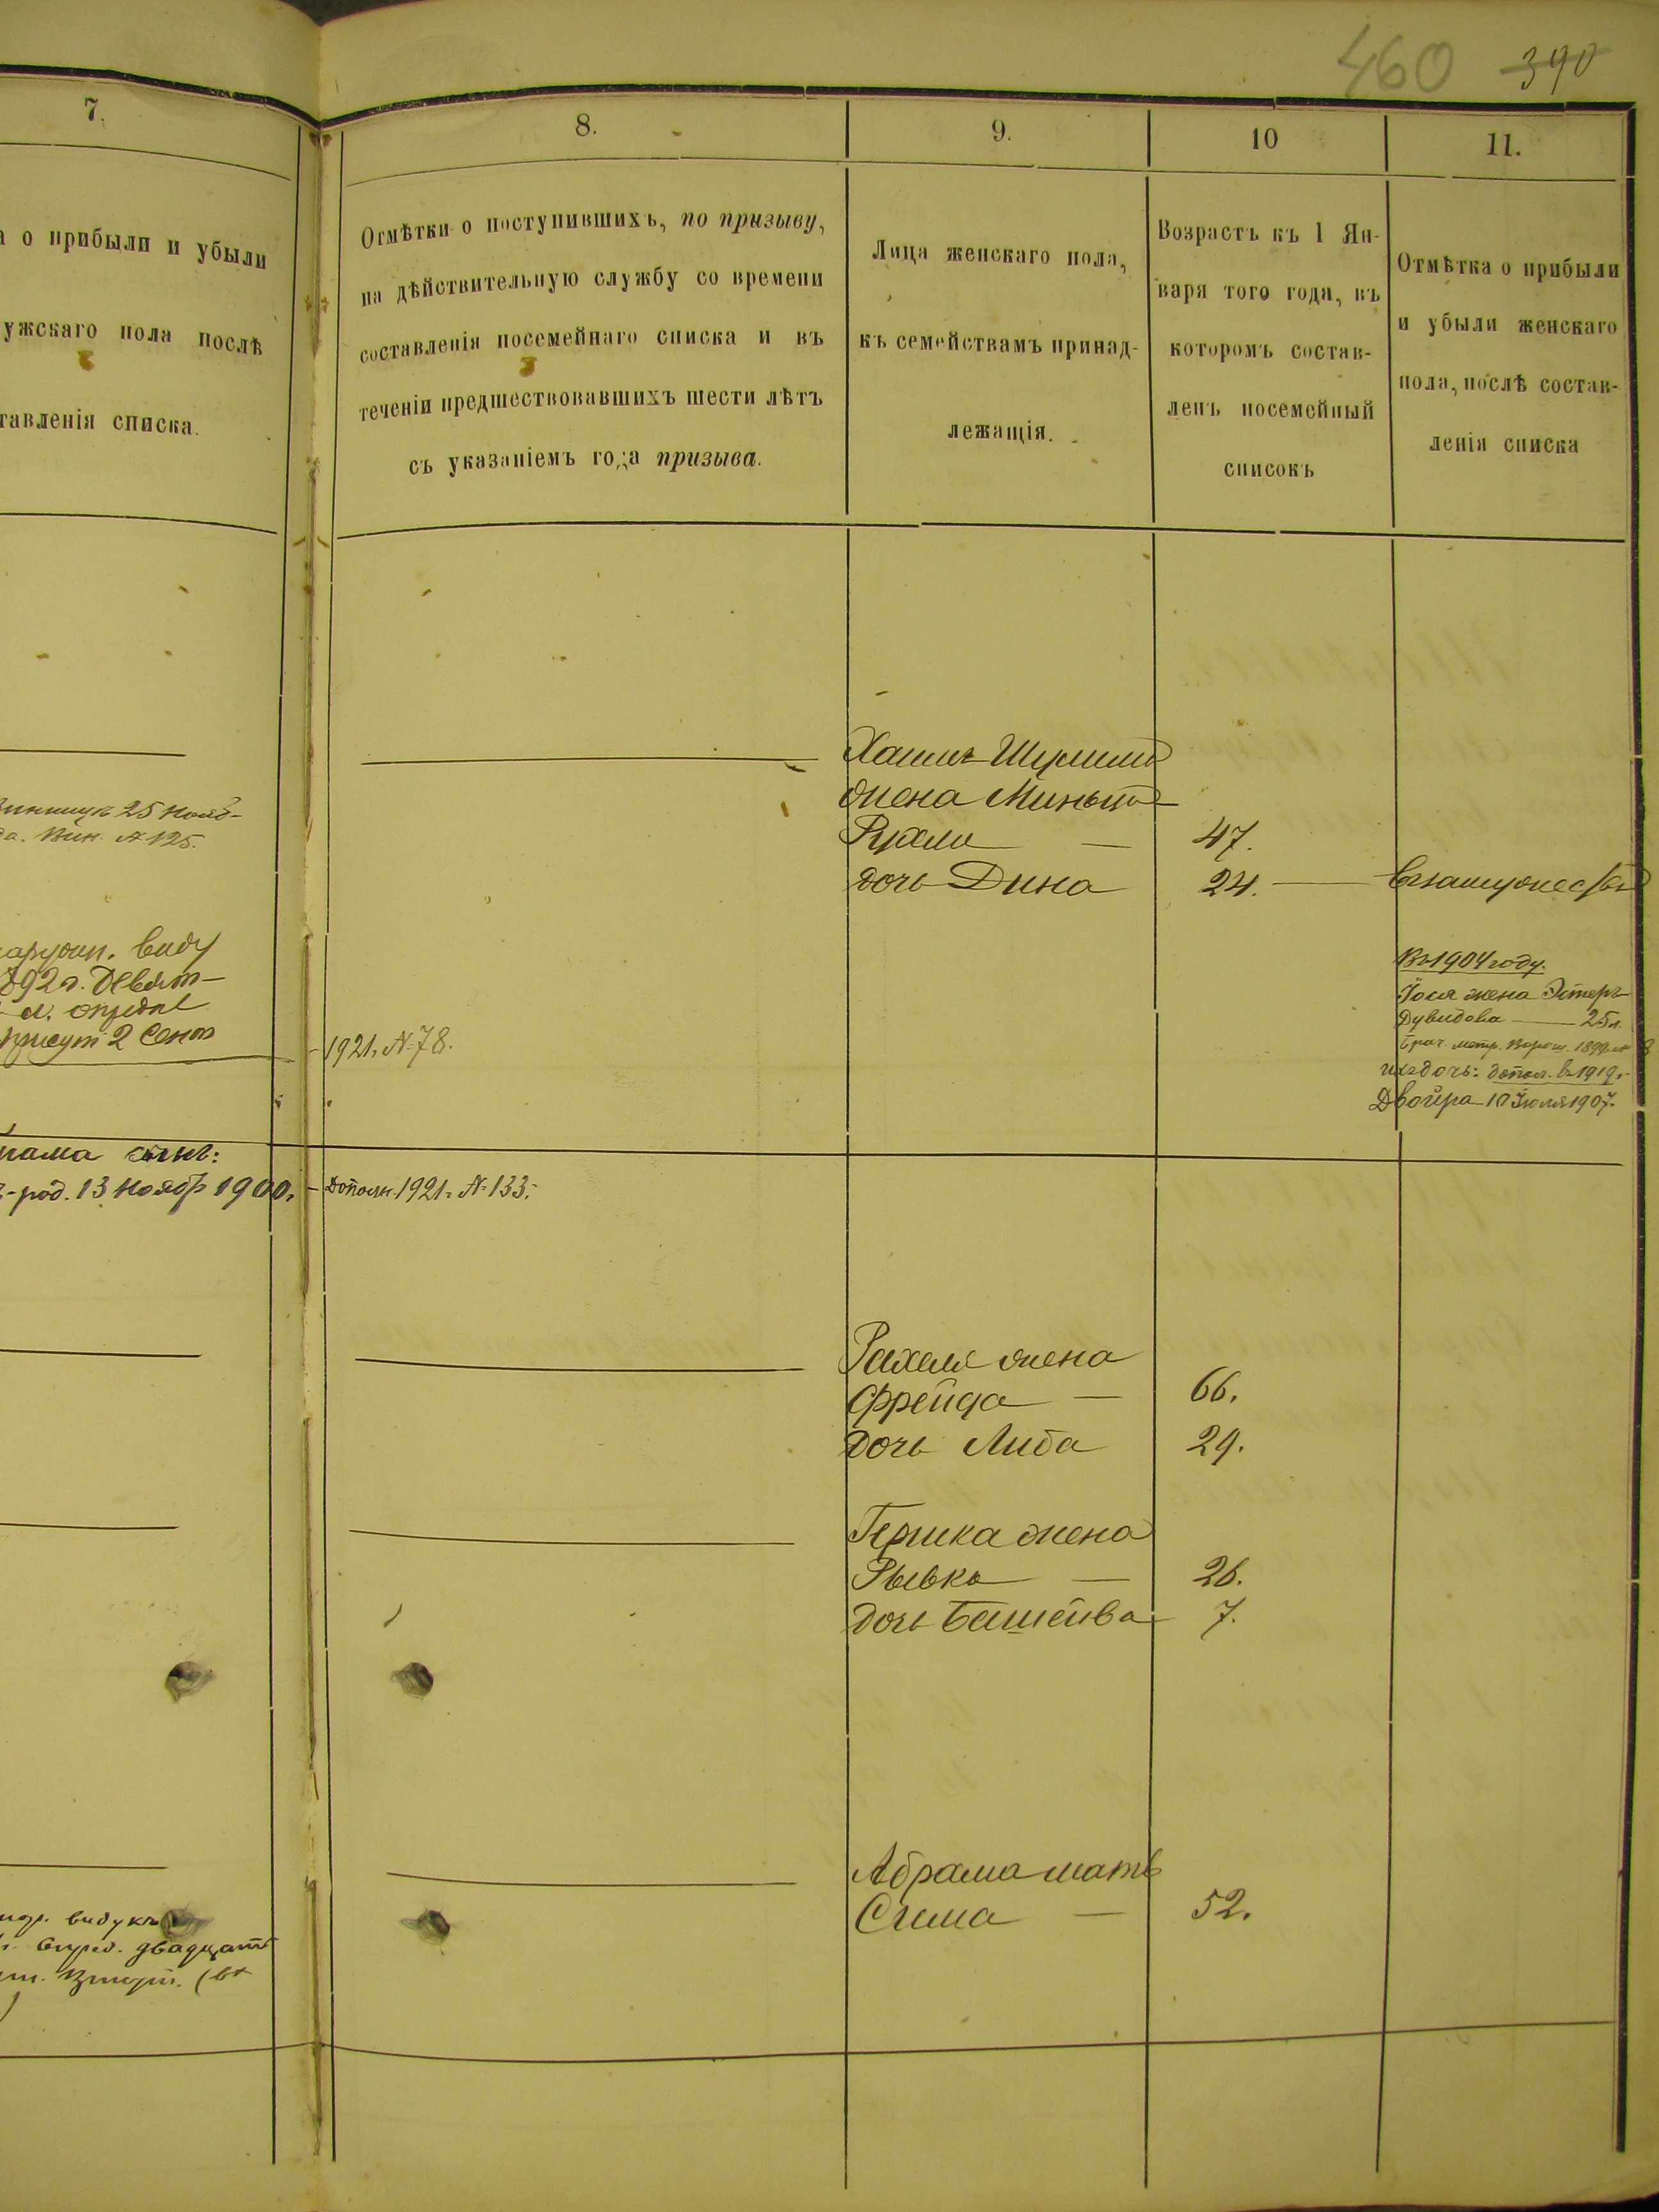 460 390
7.
8.
9.
10
11.
а о прибыли и убыли
ужскаго пола послѣ
тавленія списка.
Отмѣтки о поступившихъ, по призыву,
на дѣйствительную службу со времени
составленія посемейнаго списка и въ
теченіи предшествовавшихъ шести лѣтъ
съ указаніемъ года призыва.
Лица женскаго пола,
къ семействамъ принад-
лежащія.
Возрастъ къ 1 Ян-
варя того года, въ
которомъ состав-
ленъ посемейный
списокъ
Отмѣтка о прибыли
и убыли женскаго
пола, послѣ состав-
ленія списка
25 Нояб-
да. Вин. № 125.
виду
892 г. Девят-
2 Сент
1921 г. № 78.
жена
Рухля — 47.
дочь Дина 24. — Взамужествѣ
Въ 1904 году.
Іося жена Эстеръ
Дувидова — 25 л.
Брач. метр. 1899
ихъ дочь: допол. в 1919 г.
Двойра - 10 Июля 1907.
рама сынъ:
-род. 13 Нояб 1900. - Дополн. 1921 г. № 133.
Рахеля жена
Фрейда — 66.
дочь Либа 29.
Гершка жена
Рывка — 26.
дочь Башейва 7.
Абрама мать
Сима — 52.
видукъ
двадцать